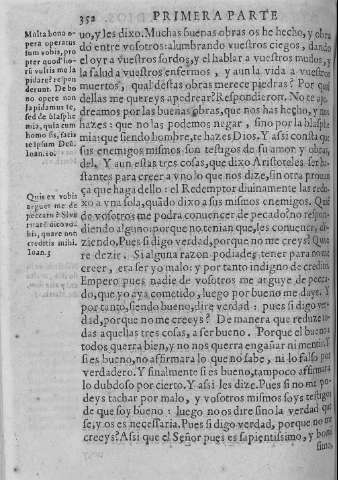 352 PRIMERA PARTE
Multa bona o-
pera operatus
sum vobis, pro-
pter quod eorũ
vultis me la
pidare? respõ
derunt. De bo
no opere non
lapidamus te,
sed de blasphe
mia, quia cum
homo sis, facis
te ipsum Deũ.
Ioan. 10.
uo, y les dixo. Muchas buenas obras os he hecho, y obra
do entre vosotros: alumbrando vuestros ciegos, dando
el oyr a vuestros sordos, y el hablar a vuestros mudos, y
la salud a vuestros enfermos, y aun la vida a vuestros
muertos, qual destas obras merece piedras? Por qual
dellas me quereys apedrear? Respondieron. No te ape
dreamos por las buenas obras, que nos has hecho, y nos
hazes: que no las podemos negar, sino por la blasphe
mia: que siendo hombre, te hazes Dios. Y assi consta que
sus enemigos mismos son testigos de su amor y obras,
del. Y aun estas tres cosas, que dixo Aristoteles ser bas
tantes para creer a vno lo que nos dize, sin otra prueua
que haga dello: el Redemptor diuinamente las redu-
xo a vna sola, quãdo dixo a sus mismos enemigos. Quiẽ
Quis ex vobis
arguet me de
peccato? Si ve
ritatẽ dico vo-
bis, quare non
creditis mihi.
Ioan. 8
de vosotros me podra conuencer de pecado? no respon
diendo alguno: porque no tenian que, les conuence, di-
ziendo. Pues si digo verdad, porque no me creys? Quie
re dezir. Si alguna razon podiades tener para no me
creer, era ser yo malo: y por tanto indigno de credito.
Empero pues nadie de vosotros me arguye de pecca-
do, que yo aya cometido, luego por bueno me days. Y
por tanto, siendo bueno, dire verdad: pues si digo ver-
dad, porque no me creeys? De manera que reduze to-
das aquellas tres cosas, a ser bueno. Porque el bueno a
todos querra bien, y no nos querra engañar ni mentir. Y
si es bueno, no affirmara lo que no sabe, ni lo falso por
verdadero. Y finalmente si es bueno, tampoco affirmara
lo dubdoso por cierto. Y assi les dize. Pues si no me po-
deys tachar por malo, y vosotros mismos soys testigos
de que soy bueno: luego no os dire sino la verdad que
se, y os es necessaria. Pues si digo verdad, porque no me
creeys? Assi que el Señor pues es sapientissimo, y bonis
simo,